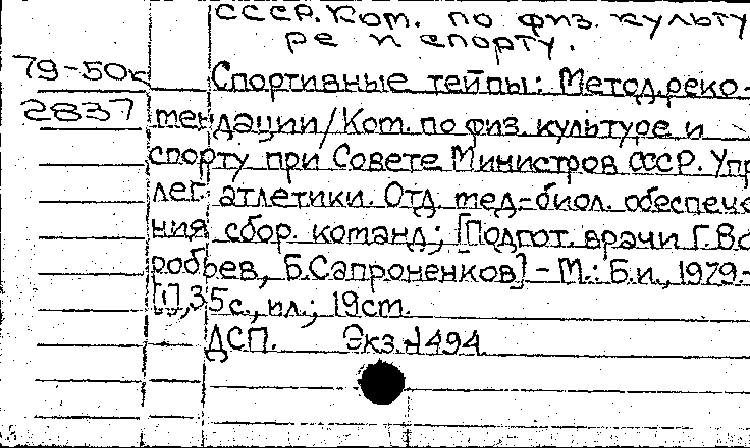 СССР. Ком. по физ. культу
ре и спорту.
79-50к Спортивные тейпы: Метод. реко-
2837 мендации/Ком. по физ. культуре и
спорту при Совете Министров СССР. Упр
лег. атлетики. Отд. мед.-биол. обеспече
ния сбор. команд; [Подгот. врачи Г. Во
робьев, Б. Сапроненков] - М.: Б.и., 1979.-
[1], 35 с., ил.; 19 см.
ДСП. Экз. №1494